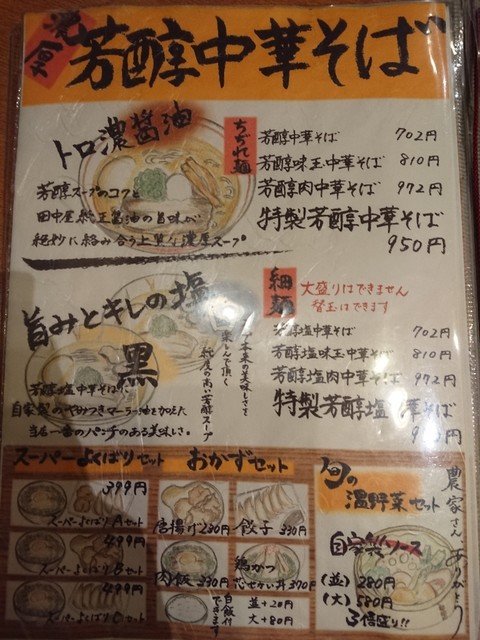 濃厚
芳醇中華そば
トロ濃醤油
芳醇スープのコクと
田中屋純正醤油の旨味が
絶妙に絡み合う上質な濃厚スープ
ちぢれ麺
芳醇中華そば 702円
芳醇味玉中華そば 810円
芳醇肉中華そば 972円
特製芳醇中華そば
950円
旨みとキレの塩
黒
本来の美味しさを
楽しんで頂く
純度の高い芳醇スープ
芳醇塩中華そばに
自家製のやみつきマーラー油を加えた
当店一番のパンチのある美味しさ。
細麺
大盛りはできません
替玉はできます
芳醇塩中華そば 702円
芳醇塩味玉中華そば 810円
芳醇塩肉中華そば 972円
特製芳醇塩 そば
スーパーよくばりセット
399円
スーパーよくばりAセット
499円
スーパーよくばりBセット
499円
スーパーよくばりCセット
おかずセット
唐揚げ230円
餃子 330円
肉飯 330円
鶏かつ
のせない丼370円
白飯付
できます
並+20円
大+80円
旬の
温野菜セット
農家さんありがとう
自家製ソース
(並) 280円
(大) 580円
3倍盛り!!